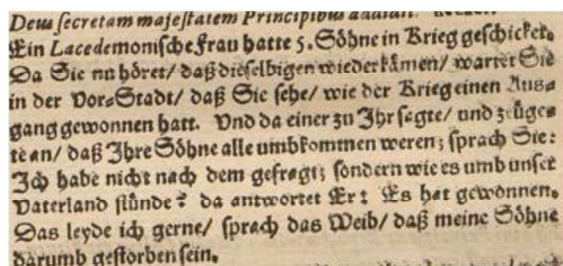 Deus secretam majestatem Principibus
Ein Lacedemonische Frau hatte 5. Söhne in Krieg geschicket.
Da Sie nu höret/ daß dieselbigen wiederkämen/ wartet Sie
in der Vor-Stadt/ daß Sie sehe/ wie der Krieg einen Aus-
gang gewonnen hatt. Vnd da einer zu Ihr segte/ und zeüge-
te an/ daß Ihre Söhne alle umbkommen weren; sprach Sie:
Ich habe nicht nach dem gefragt; sondern wie es umb unser
Vaterland stünde? da antwortet Er: Es hat gewonnen.
Das leyde ich gerne/ sprach das Weib/ daß meine Söhne
darumb gestorben sein.